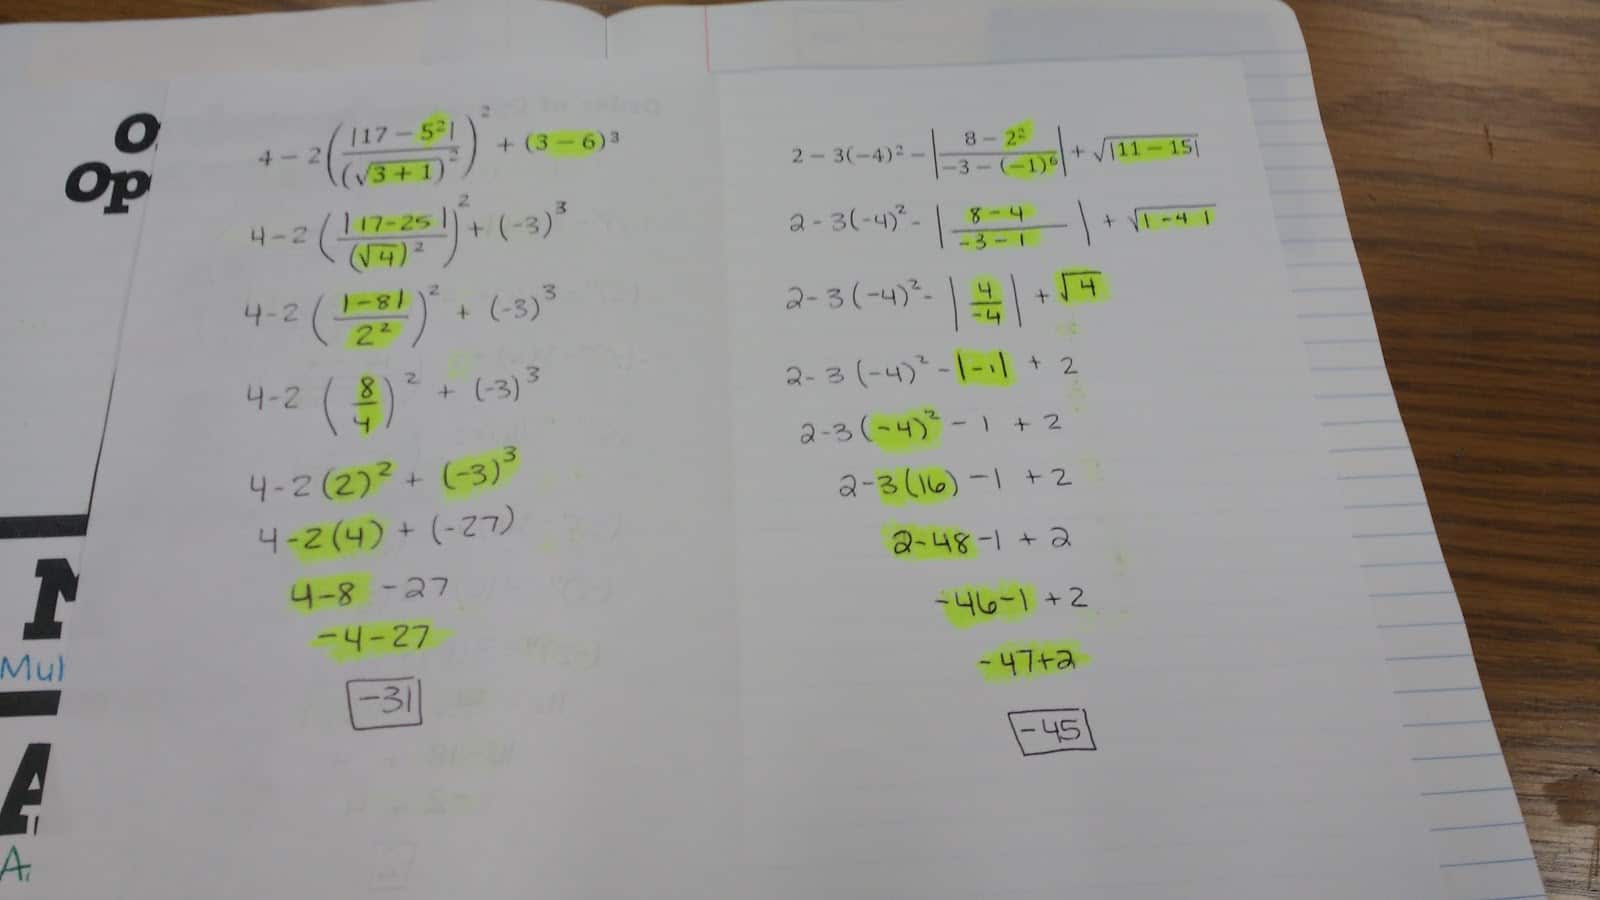 O
Op
M
Mul
A
A
4 − 2(|17 − 5²| / (√3 + 1)²)² + (3 − 6)³
4-2(|17-25| / (√4)²)² + (-3)³
4-2(|-8| / 2²)² + (-3)³
4-2(8/4)² + (-3)³
4-2(2)² + (-3)³
4-2(4) + (-27)
4-8 -27
-4-27
-31
2 − 3(−4)² − |8 − 2² / −3 − (−1)⁶| + √|11 − 15|
2-3(-4)² - |8-4 / -3-1| + √|-4|
2-3(-4)² - |4/-4| + √4
2-3(-4)² - |-1| + 2
2-3(-4)² - 1 + 2
2-3(16) -1 + 2
2-48-1 + 2
-46-1 + 2
-47+2
-45